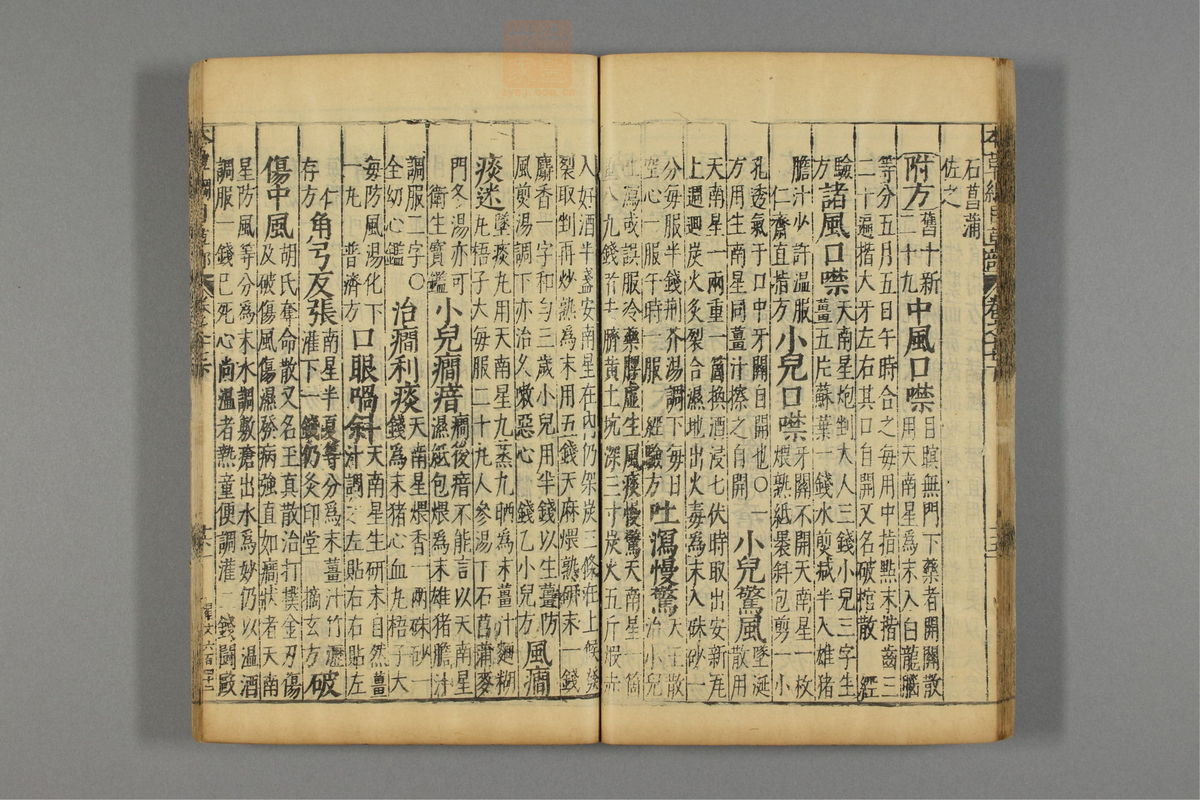 石菖蒲
佐之
附方 舊十新二十九 中風口噤 目瞑無門下藥者開關散用天南星為末入白龍腦
等分五月五日午時合之每用中指點末揩齒三二十遍揩大牙左右其口自開又名破棺散 經
驗方 諸風口噤 天南星炮剉大人三錢小兒三字生薑五片蘇葉一錢水煎減半入雄猪
膽汁少許溫服 仁齋直指方 小兒口噤 牙關不開天南星一枚煨熟紙裹斜包剪一小
孔透氣于口中牙關自開也○一方用生南星同薑汁擦之自開 小兒驚風 墜涎散用
天南星一兩重一箇換酒浸七伏時取出安新瓦上週迴炭火炙裂合濕地出火毒為末入硃砂一
分每服半錢荊芥湯調下每日空心一服午時一服 經驗方 吐瀉慢驚 天王散治小兒
吐瀉或誤服冷藥脾虛生風痰慢驚天南星一箇重八九錢者去臍黃土坑深三寸炭火五斤煅赤
入好酒半盞安南星在內仍架炭三條在上候發裂取剉再炒熟為末用五錢天麻煨熟研末一錢
麝香一字和勻三歲小兒用半錢以生薑防風煎湯調下亦治久嗽惡心 錢乙小兒方 風癇
痰迷 墜痰丸用天南星九蒸九晒為末薑汁麵糊丸梧子大每服二十丸人參湯下石菖蒲麥
門冬湯亦可 衛生寶鑑 小兒癇瘖 癇後瘖不能言以天南星濕紙包煨為末雄猪膽汁
調服二字○全幼心鑑 治癇利痰 天南星煨香一兩硃砂一錢為末猪心血丸梧子大
每防風湯化下一丸 普濟方 口眼喎斜 天南星生研末自然薑汁調之左貼右右貼左
仁存方 角弓反張 南星半夏等分為末薑汁竹瀝灌下一錢仍灸印堂 摘玄方 破
傷中風 胡氏奪命散又名玉真散治打撲金刃傷及破傷風傷濕發病強直如癇狀者天南
星防風等分為末水調敷瘡出水為妙仍以溫酒調服一錢已死心尚溫者熱童便調灌二錢鬭毆